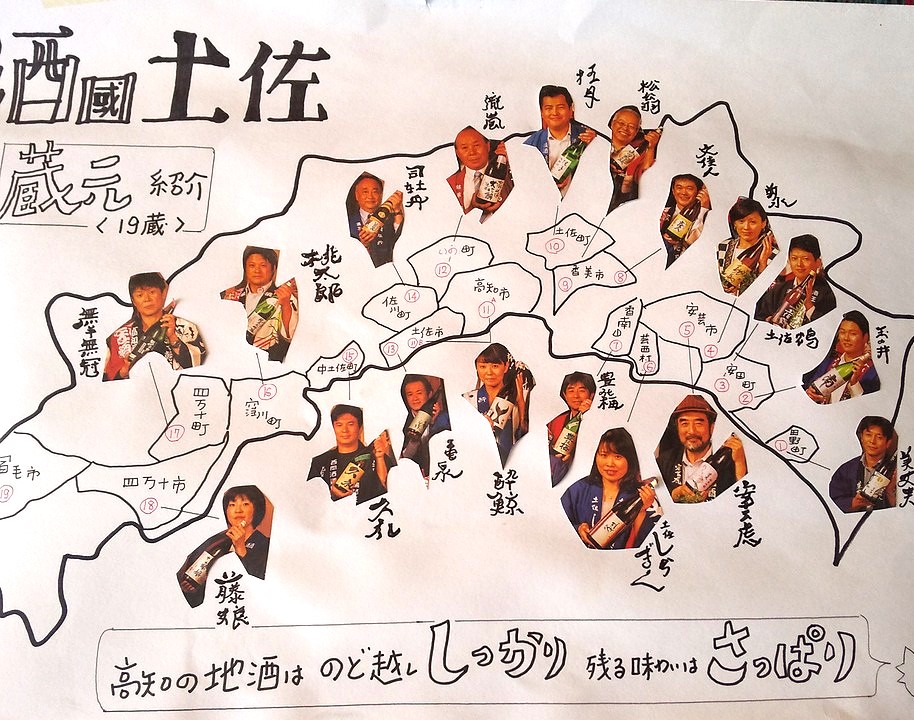 酒國土佐
蔵元 紹介
〈19蔵〉
松翁
桂月
瀧嵐
文佳人
司牡丹
南
桃太郎
無手無冠
土佐鶴
玉の井
美丈夫
豊能梅
亀泉
酔鯨
久礼
安芸虎
土佐しらぎく
藤娘
いの町
⑫
土佐町
⑩
香美市
⑨ ⑧
高知市
⑪
佐川町
⑭
土佐市
⑬
中土佐町
⑮
窪川町
⑯
四万十町
⑰
四万十市
⑱
宿毛市
⑲
香南市
⑦
芸西村
⑥
安芸市
⑤
④
安田町
③ ②
田野町
①
高知の地酒は のど越し しっかり 残る味わいは さっぱり